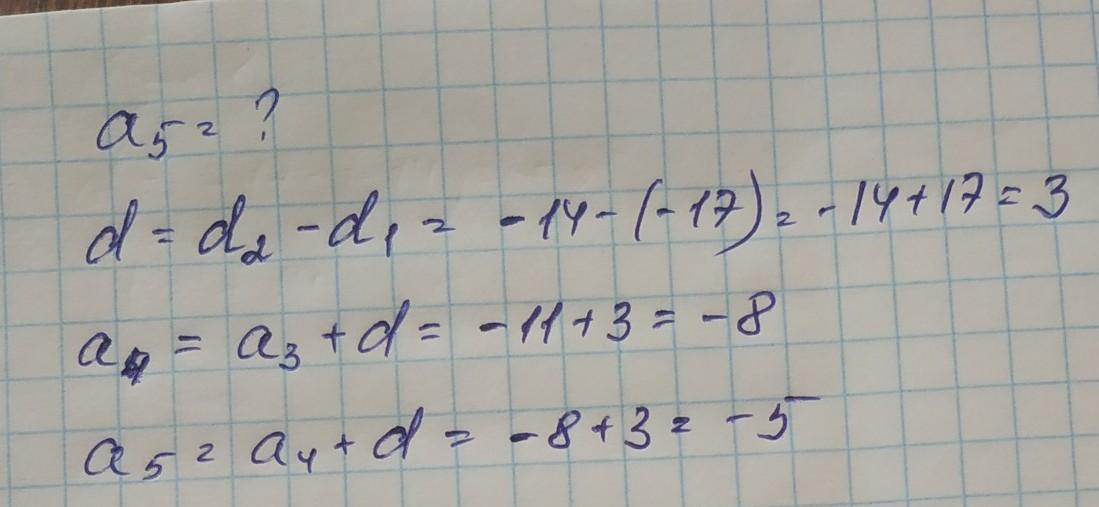 a₅ = ?
d = d₂ - d₁ = -14 - (-17) = -14 + 17 = 3
a₄ = a₃ + d = -11 + 3 = -8
a₅ = a₄ + d = -8 + 3 = -5